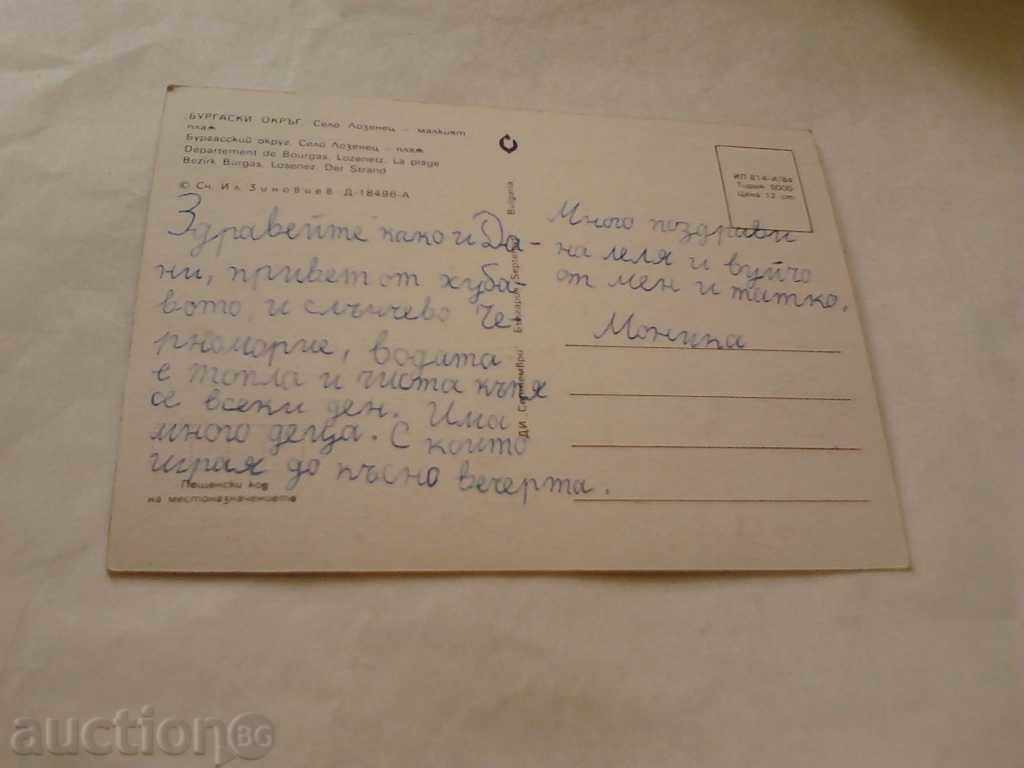 БУРГАСКИ ОКРЪГ. Село Лозенец – малкият
плаж
Бургасский округ. Село Лозенец – пляж
Departement de Bourgas, Lozenetz. La plage
Bezirk Burgas, Losenez. Der Strand
© Сн. Ил. Зиновиев Д-18496-А
Здравейте како и Да-
ни, привет от хуба-
вото и слънчево Че-
рноморие, водата
е топла и чиста къпя
се всеки ден. Има
много деца. С които
играя до късно вечерта.
Пощенски код
на местоназначението
ДИ Септември България Septemvri Bulgaria
ИП 814-И/84
Тираж 5000
Цена 12 ст
Много поздрави
на леля и вуйчо
от мен и татко.
Моника
auctionBG